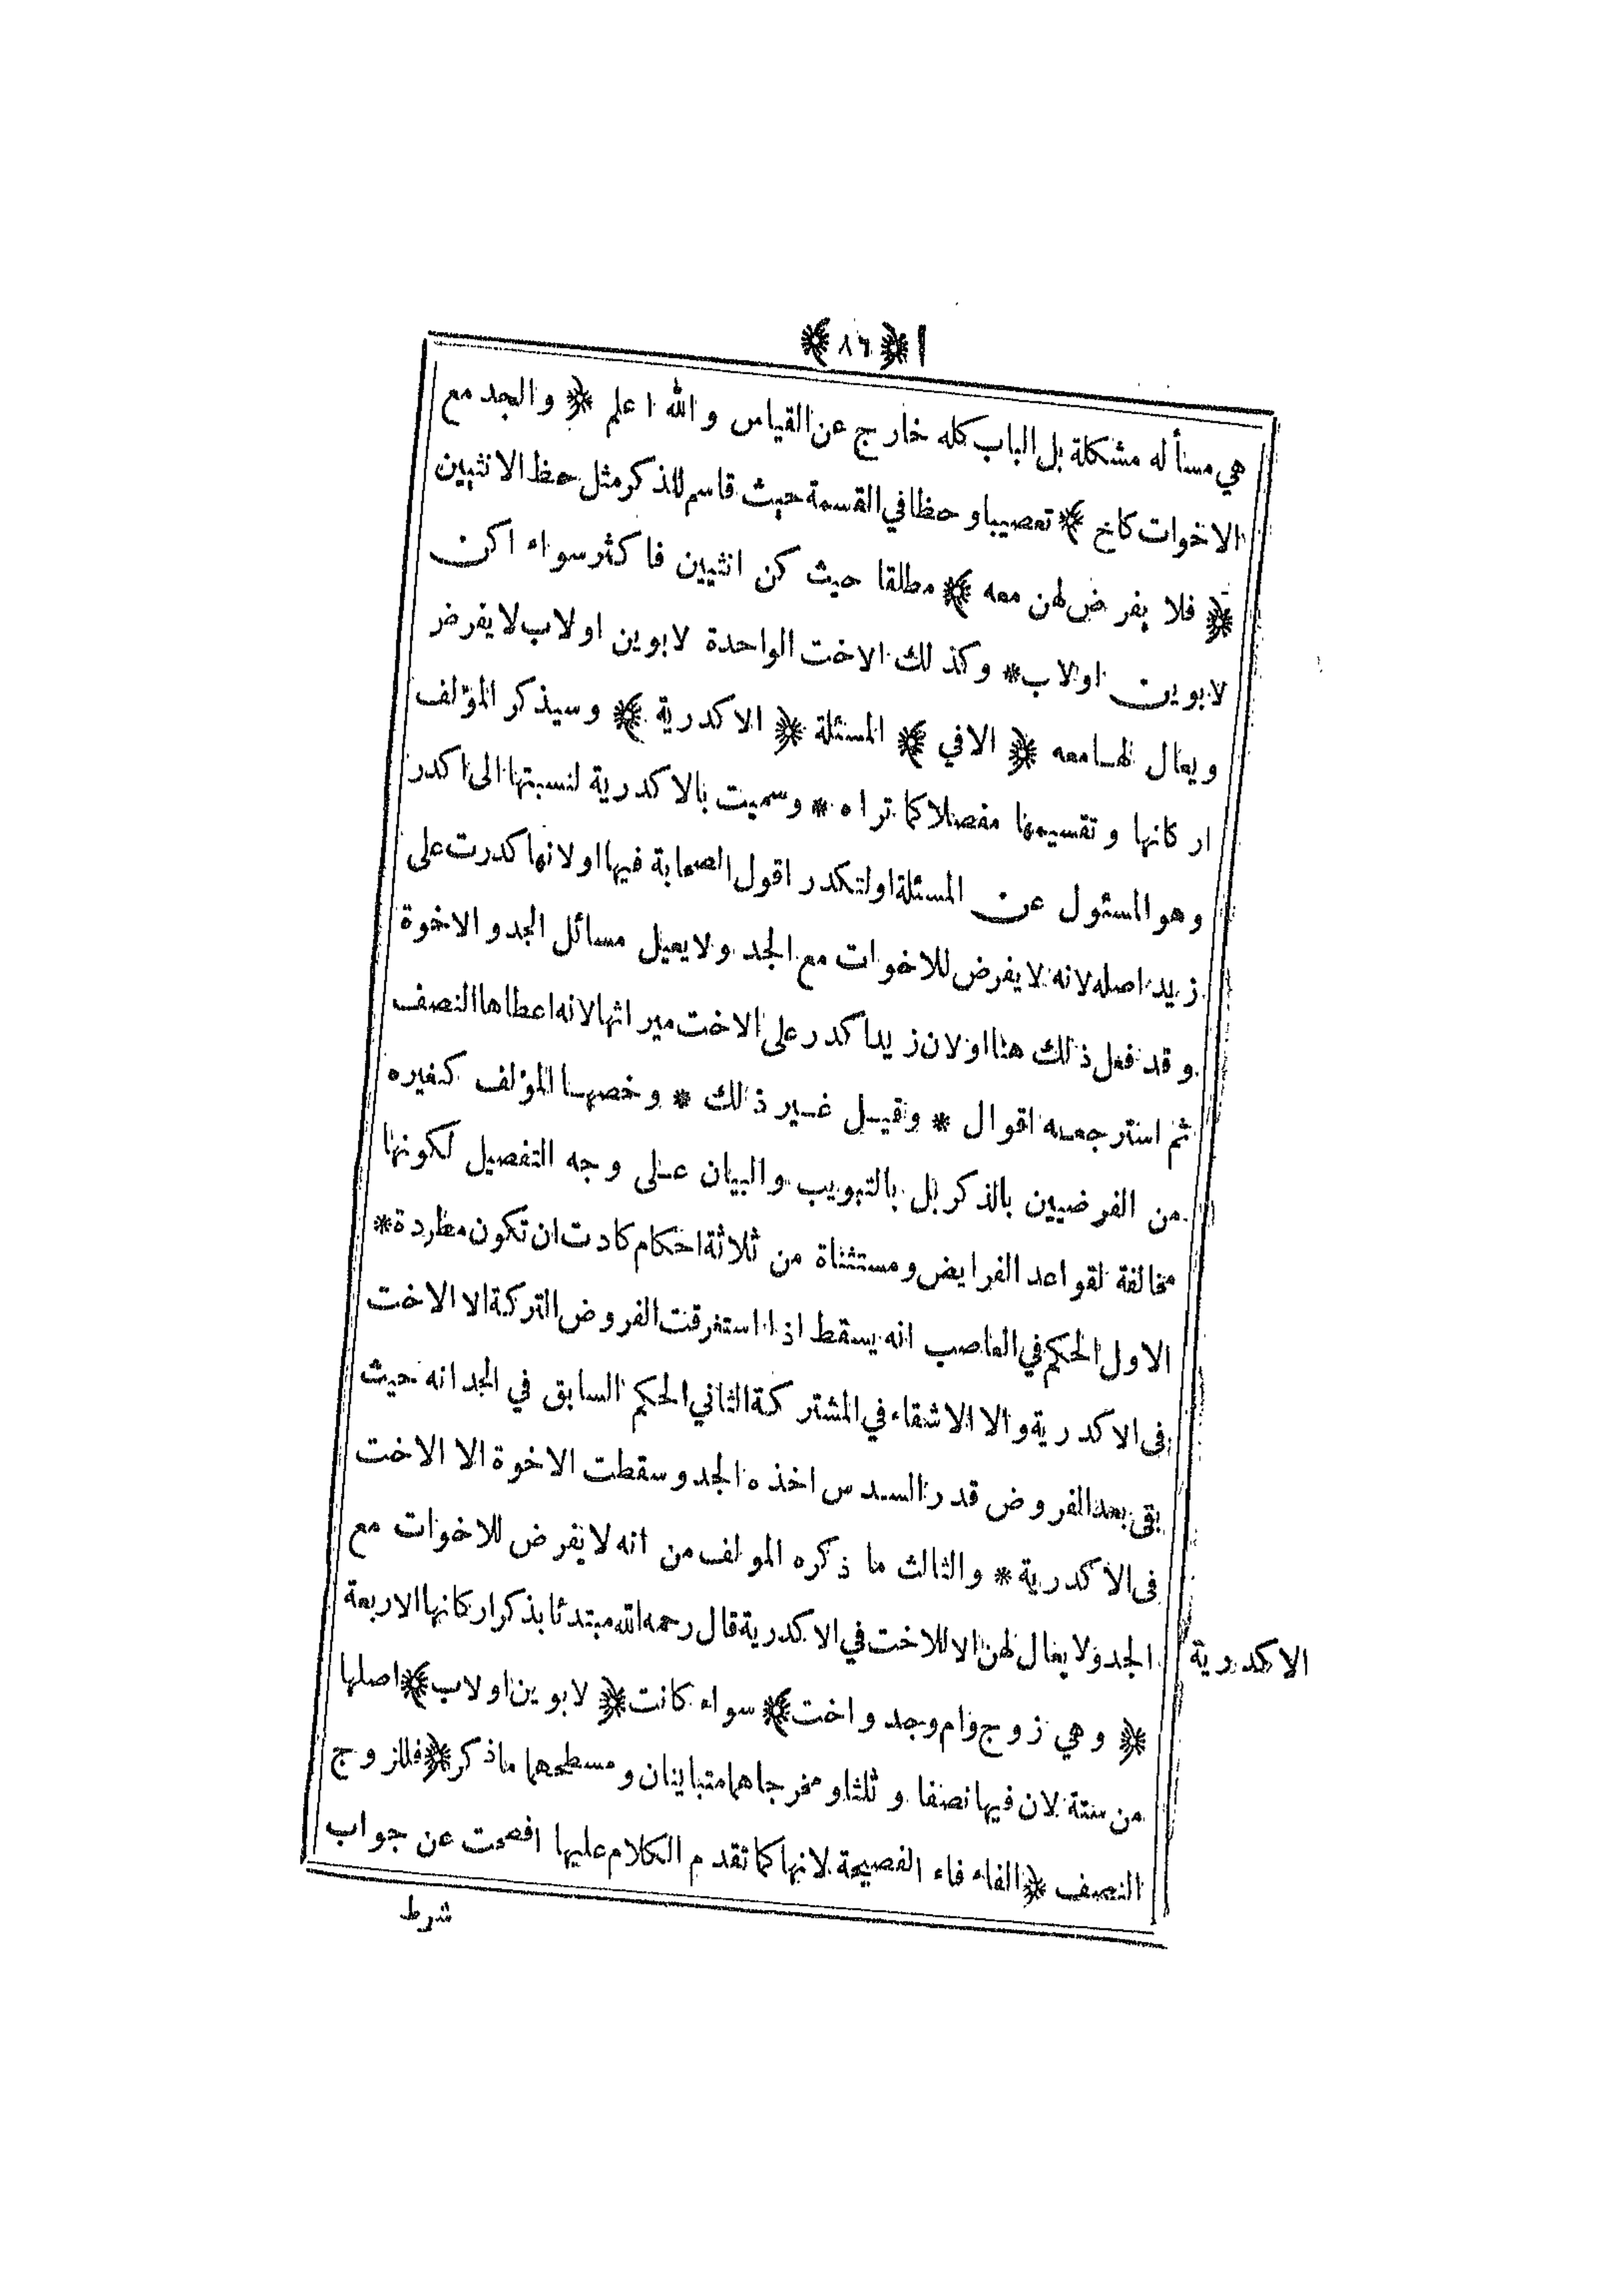 ﴿ ٨٦ ﴾
هي مسأله مشكلة بل الباب كله خارج عن القياس والله اعلم ﴿ والجد مع
الاخوات كاخ ﴾ تعصيبا وحظا في القسمة حيث قاسم للذكر مثل حظ الانثيين
﴿ فلا يفرض لهن معه ﴾ مطلقا حيث كن انثيين فاكثر سواء اكن
لابوين اولاب * وكذلك الاخت الواحدة لابوين اولاب لا يفرض
ويعال لها معه ﴿ الا في ﴾ المسئلة ﴿ الاكدرية ﴾ وسيذكر المؤلف
اركانها وتقسيمها مفصلا كما تراه * وسميت بالاكدرية لنسبتها الى اكدر
وهو المسئول عن المسئلة اولتكدر اقول الصحابة فيها اولانها كدرت على
زيد اصله لانه لا يفرض للاخوات مع الجد ولا يعيل مسائل الجد والاخوة
وقد فعل ذلك هنا اولان زيدا كدر على الاخت ميراثها لانه اعطاها النصف
ثم استرجعه اقوال * وقيل غير ذلك * وخصها المؤلف كغيره
من الفرضيين بالذكر بل بالتبويب والبيان على وجه التفصيل لكونها
مخالفة لقواعد الفرايض ومستثناة من ثلاثة احكام كادت ان تكون مطردة *
الاول الحكم في العاصب انه يسقط اذا استغرقت الفروض التركة الا الاخت
فى الاكدرية والا الاشقاء في المشتركة الثاني الحكم السابق في الجد انه حيث
بقى بعد الفروض قدر السدس اخذه الجد وسقطت الاخوة الا الاخت
فى الاكدرية * والثالث ما ذكره المولف من انه لا يفرض للاخوات مع
الجد ولا يعال لهن الا للاخت في الاكدرية قال رحمه الله مبتدئا بذكر اركانها الاربعة
الاكدرية
﴿ وهي زوج وام وجد واخت ﴾ سواء كانت ﴿ لابوين اولاب ﴾ اصلها
من ستة لان فيها نصفا وثلثا ومخرجاهما متباينان ومسطحهما ماذكر ﴿ فللزوج
النصف ﴿ الفاء فاء الفصيحة لانها كما تقدم الكلام عليها افصحت عن جواب
شرط